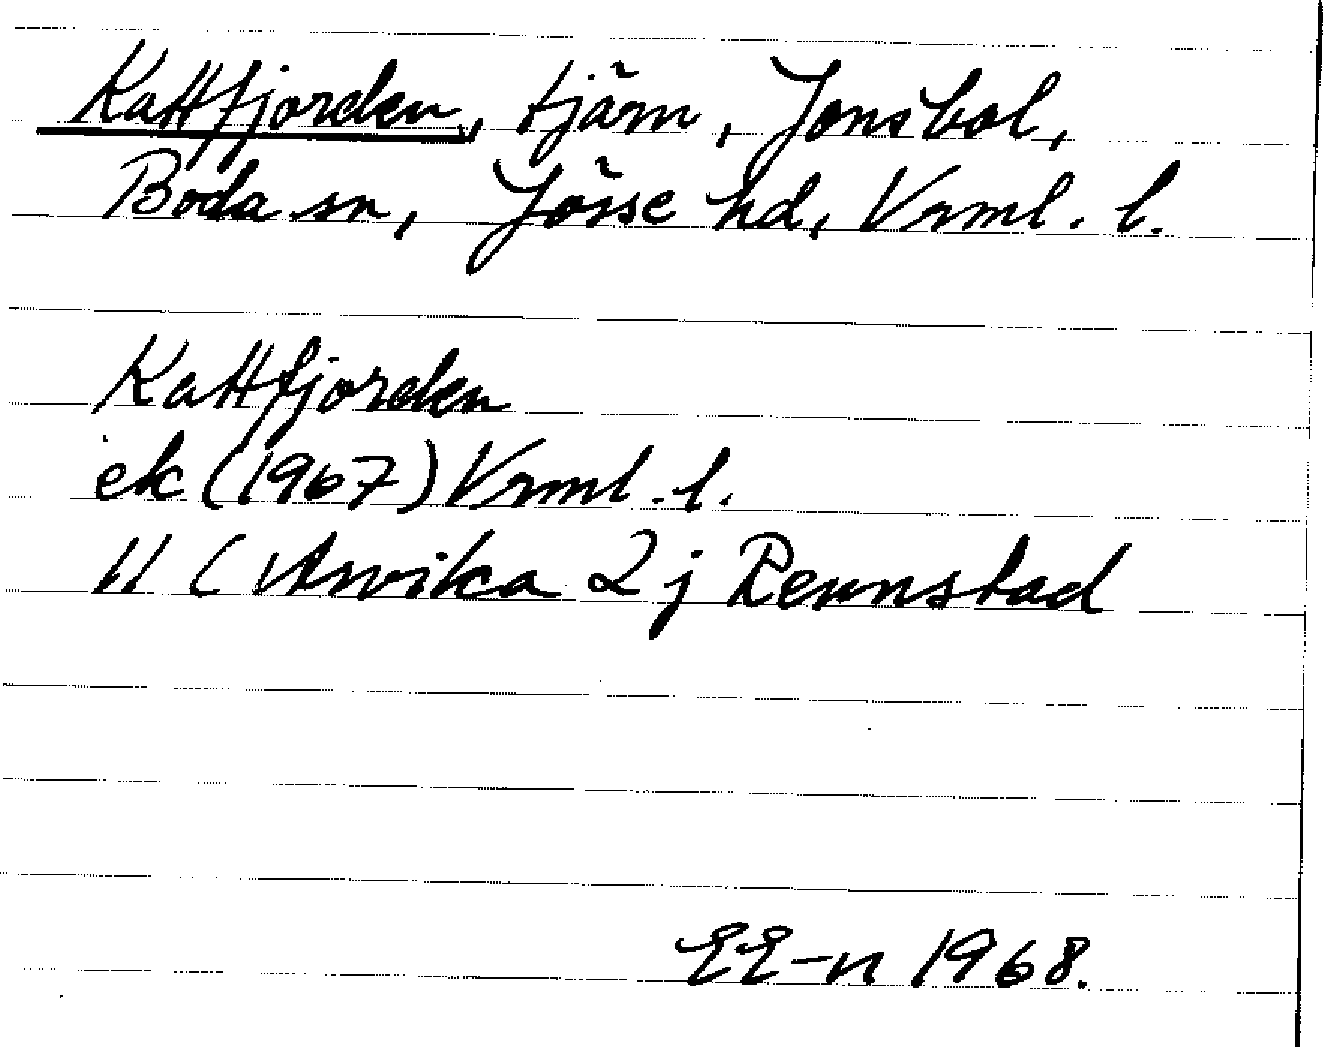 Kattfjorden, tjärn, Jonsbol,
Boda sn, Jösse hd, Vrml. l.
Kattfjorden
ek (1967) Vrml. l.
11 C Arvika 2 j Rennstad
EE-n 1968.